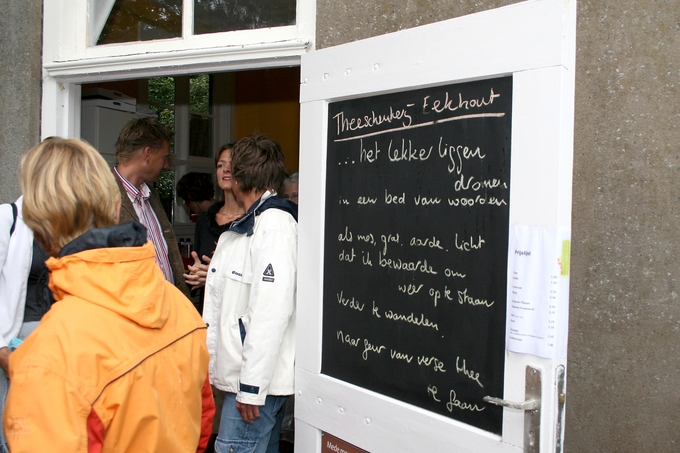 Theeschenkerij Eekhout
...het lekker liggen
dromen
in een bed van woorden
als mos, gras, aarde, licht
dat ik bewaarde om
weer op te staan
verder te wandelen.
naar geur van verse thee
te gaan
Prijslijst
Mede